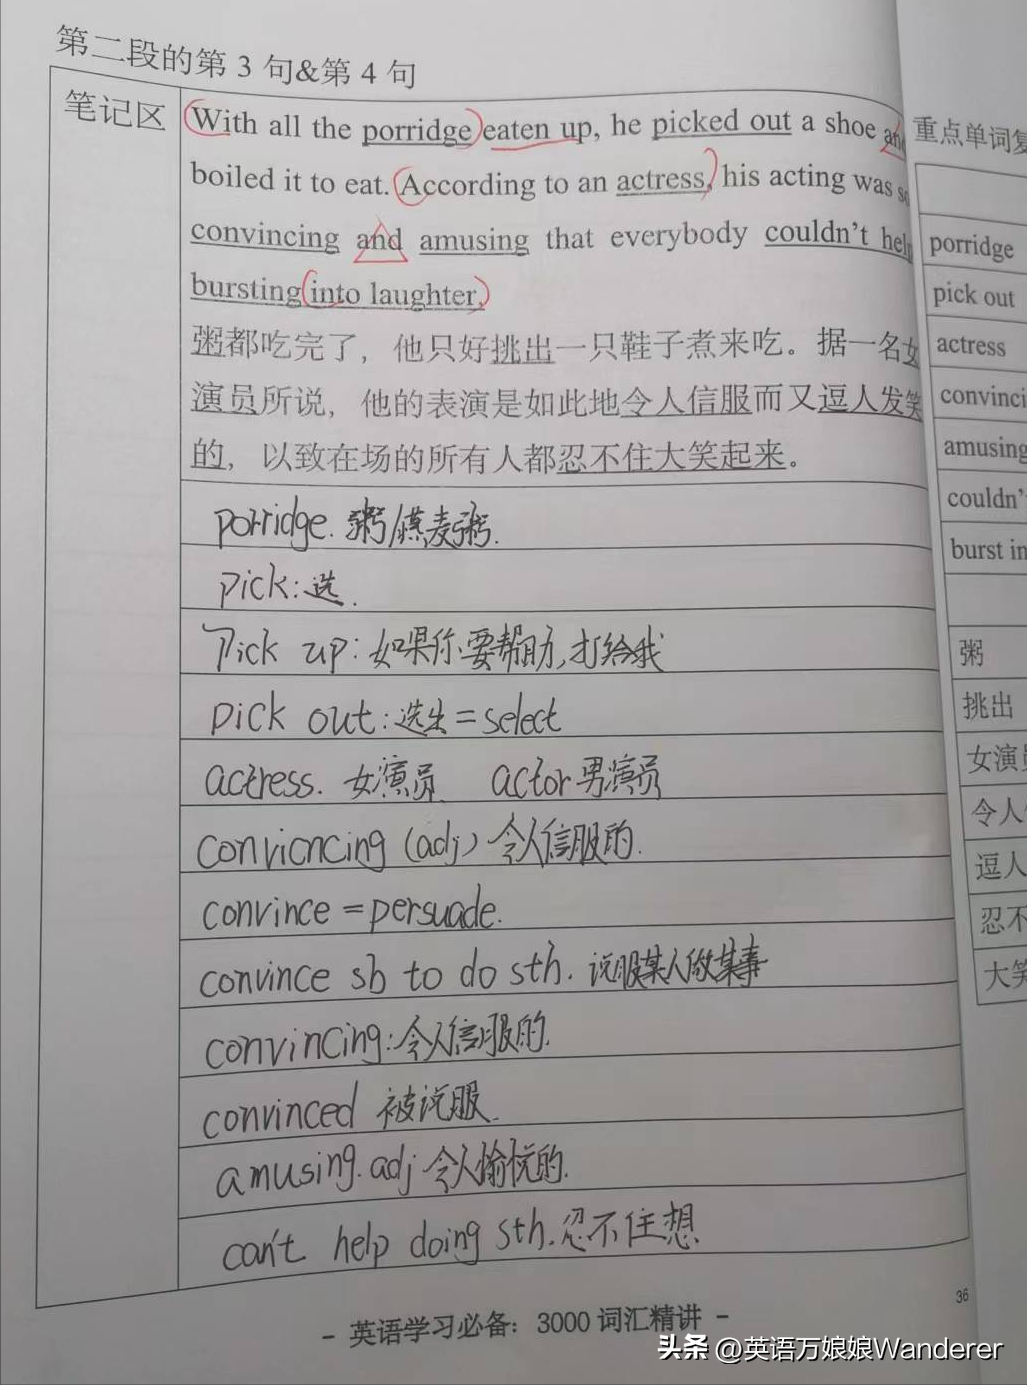 第二段的第 3 句&第 4 句
笔记区
With all the porridge eaten up, he picked out a shoe
boiled it to eat. According to an actress, his acting was
convincing and amusing that everybody couldn't help
bursting into laughter.
粥都吃完了，他只好挑出一只鞋子煮来吃。据一名女
演员所说，他的表演是如此地令人信服而又逗人发笑
的，以致在场的所有人都忍不住大笑起来。
porridge. 粥/燕麦粥.
pick:选.
Pick up: 如果你要帮助,打给我
pick out:选出=select
actress. 女演员. actor男演员
convicncing (adj) 令人信服的.
convince =persuade.
convince sb to do sth. 说服某人做某事
convincing:令人信服的.
convinced 被说服.
amusing.adj 令人愉悦的.
can't help doing sth.忍不住想
- 英语学习必备：3000 词汇精讲 -
36
重点单词
porridge
pick out
actress
convinci
amusing
couldn'
burst in
粥
挑出
女演
令人
逗人
忍不
大笑
头条 @英语万娘娘Wanderer